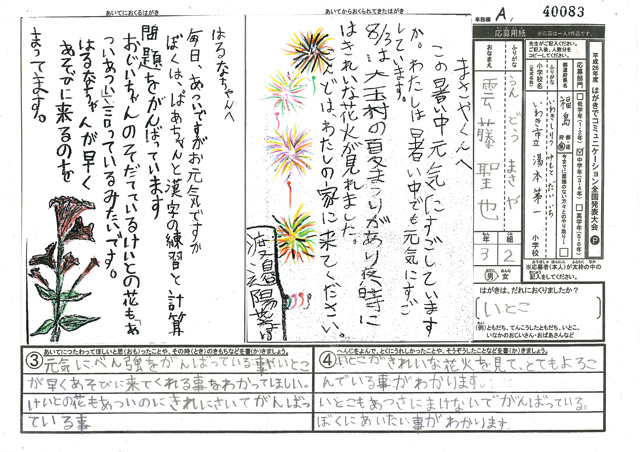 事務欄 A、 40083
あいてにおくるはがき
はるなちゃんへ
毎日、あついですがお元気ですか
ぼくは、ばあちゃんと漢字の練習と計算
問題をがんばっています
おじいちゃんのそだてているけいとの花もあ
ついあついと言っているみたいです。
はるなちゃんが早く
あそびに来るのを
まってます。
あいてからおくられてきたはがき
まさやくんへ
この暑い中元気にすごしています
か。わたしは暑い中でも元気にすご
しています。
8/3は大玉村の夏まつりがあり夜時に
はきれいな花火が見れました。
こんどは、わたしの家に来てください。
応募用紙
※応募は一人1作品です。
先生がご記入ください。
ご記入後、人数分を
コピーしてください。
平成26年度 はがきでコミュニケーション全国発表大会 P
応募部門
低学年(1・2年)
中学年(3・4年)
高学年(5・6年)
都道府県名
福島 都・道・府・県
小学校名
(正式名称)
ふりがな
いわき市立 湯本第一 小学校
ふりがな
うんどう まさや
おなまえ
雲藤 聖也
3 年
2 組
男 女
※応募者(本人)が太枠の中の
記入をしてください。
はがきは、だれにおくりましたか?
(いとこ)
(例)ともだち、てんこうしたともだち、いとこ、
いなかのおじいさん・おばあさんなど
あいてにつたわってほしいと思(おも)ったことや、その時(とき)のきもちなどを書(か)きましょう。
③ 元気にべん強をがんばっている事やいとこ
が早くあそびに来てくれる事をわかってほしい。
けいとの花もあついのにきれいにさいてがんばっ
ている事
へんじをよんで、とくにうれしかったことや、そうぞうしたことなどを書(か)きましょう。
④ いとこがきれいな花火を見て、とてもよろこ
んでいる事がわかります。
いとこもあつさにまけないでがんばっている。
ぼくにあいたい事がわかります。